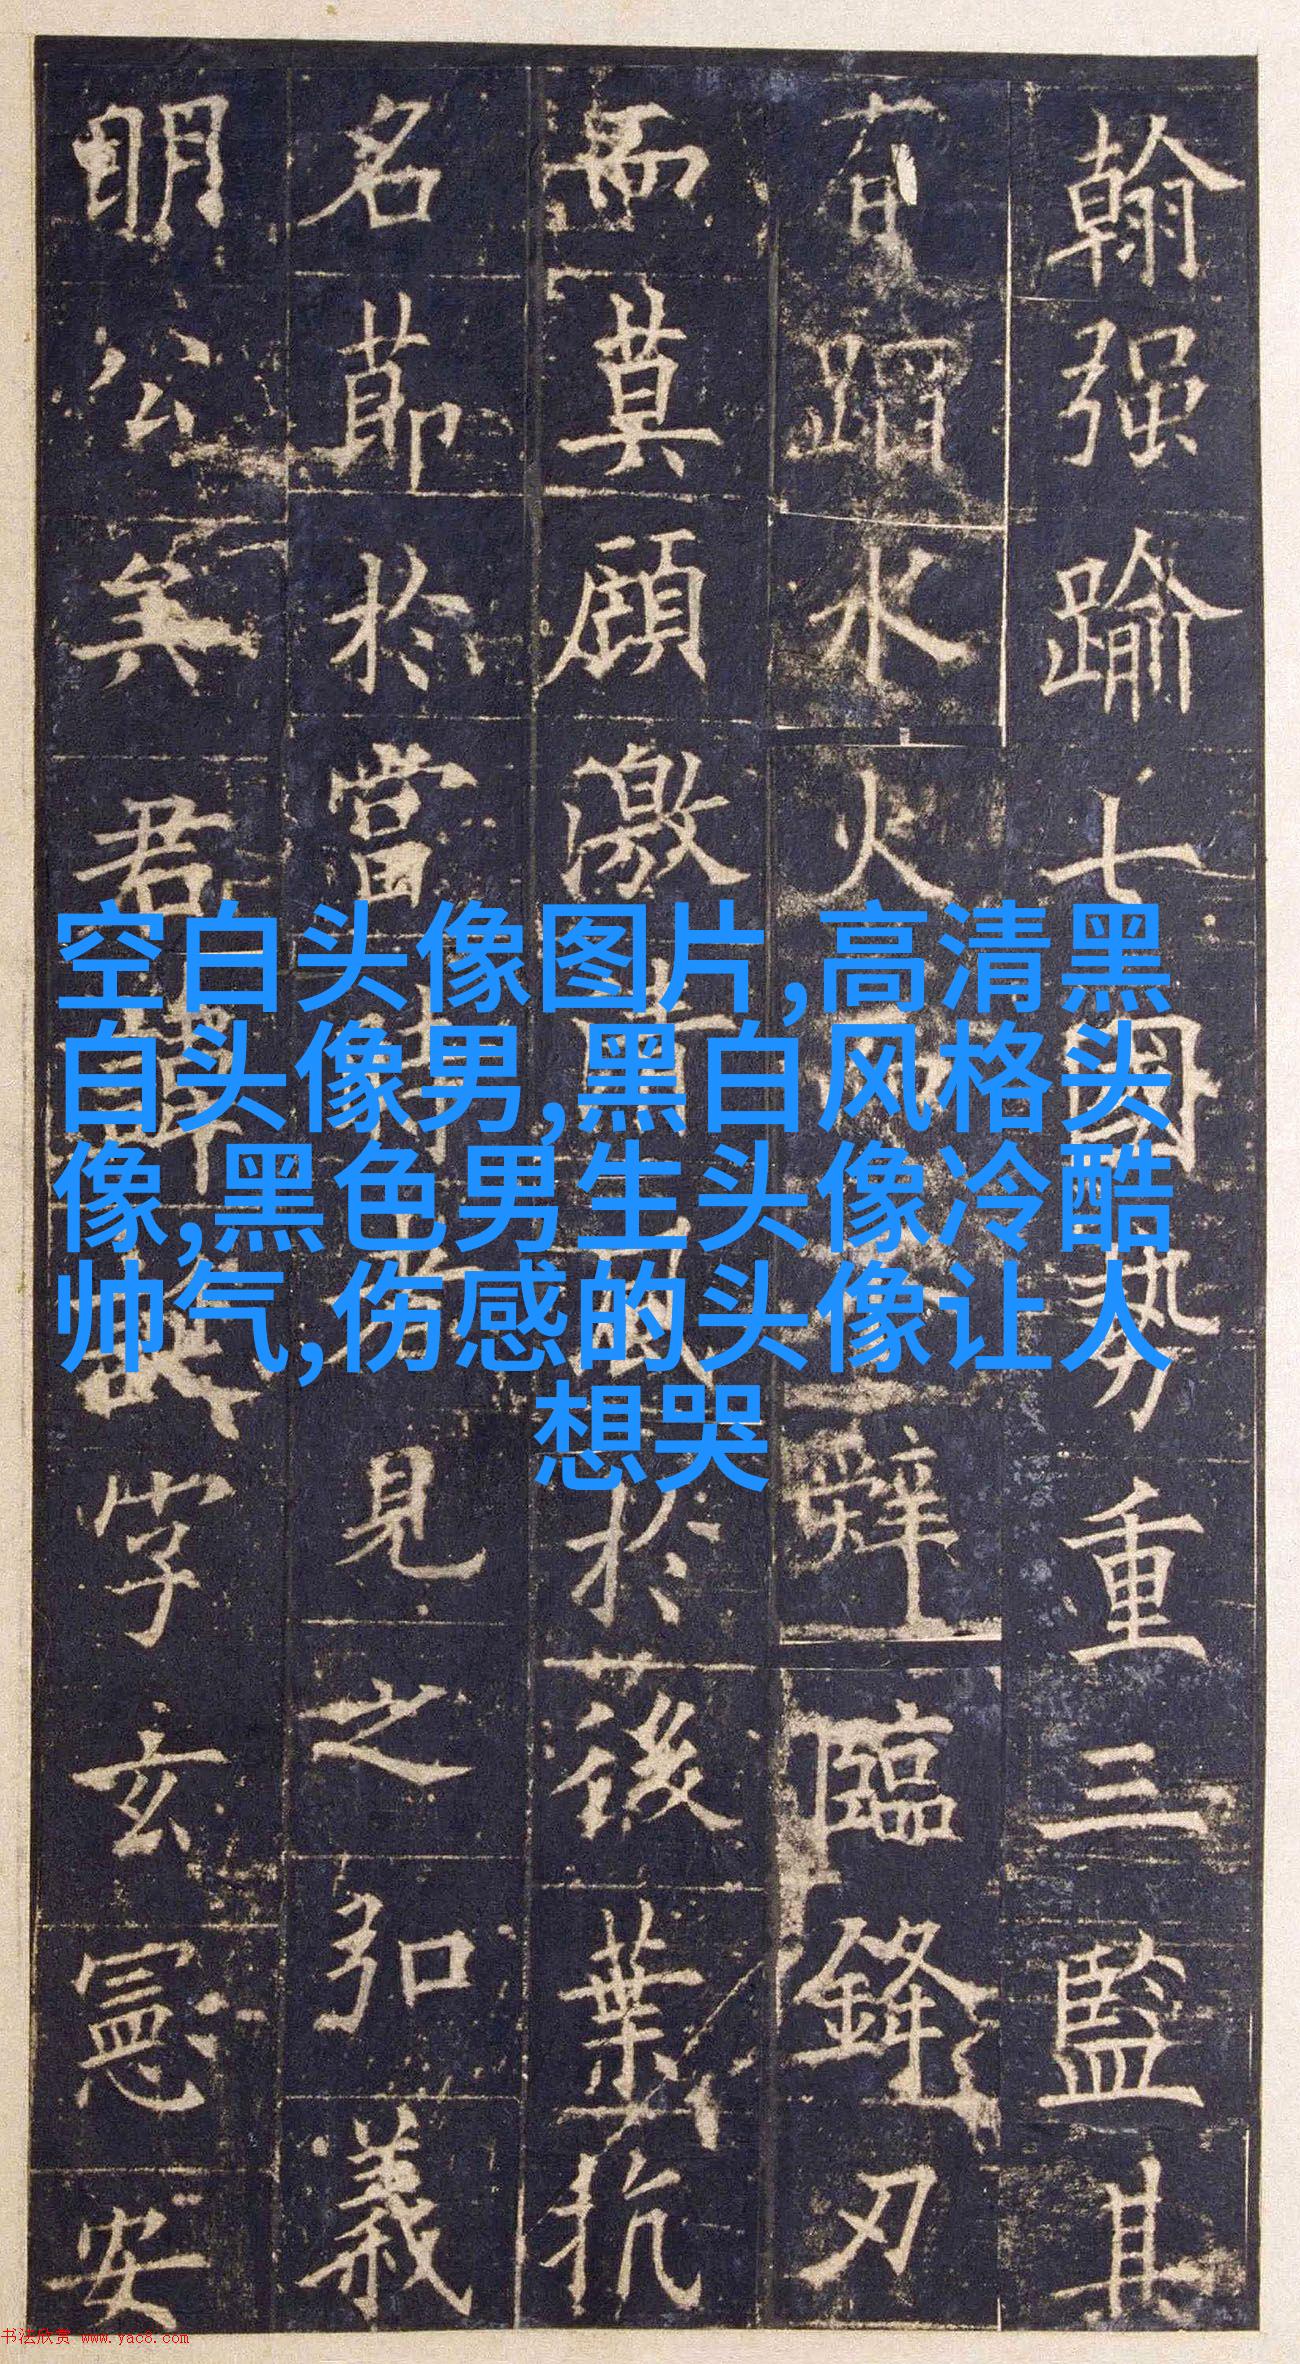 翰强踰七國勢重三監其
有蹈水火而不辭臨鋒刃
而莫顧激清風於後葉抗
名節於當時者見之弘義
明公矣君諱誕字玄憲安
空白头像图片,高清黑
白头像男,黑白风格头
像,黑色男生头像冷酷
帅气,伤感的头像让人
想哭
书法欣赏 www.yac8.com